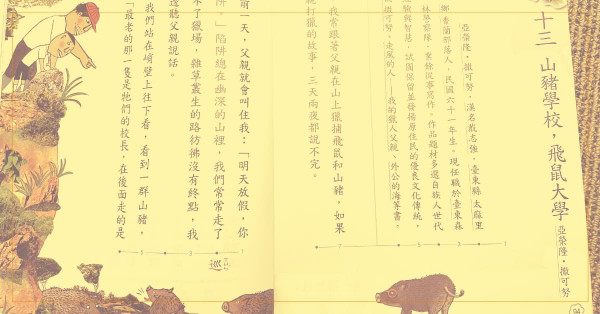 十三 山豬學校,飛鼠大學
亞榮隆‧撒可努
亞榮隆‧撒可努,漢名戴志強,臺東縣太麻里
鄉香蘭部落人,民國六十一年生。現任職於臺東森
林警察隊,業餘從事寫作。作品題材多選自族人世代
經驗與智慧,試圖保留並發揚原住民的優良文化傳統,
撒可努‧走風的人——我的獵人父親、外公的海等書。
我常跟著父親在山上獵捕飛鼠和山豬,如果
打獵的故事,三天兩夜都說不完。
前一天,父親就會叫住我:「明天放假,你
阱。」陷阱總在幽深的山裡,我們常常走了
不了獵場,雜草叢生的路彷彿沒有終點,我
邊聽父親說話。
我們站在峭壁上往下看,看到一群山豬,
「最老的那一隻是牠們的校長,在後面走的是
1
3
5
7
1
3
5
巡
94